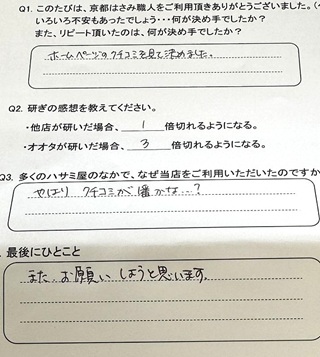 Q1. このたびは、京都はさみ職人をご利用頂きありがとうございました。(
いろいろ不安もあったでしょう・・・何が決め手でしたか?
また、リピート頂いたのは、何が決め手でしたか?
ホームページのクチコミを見て決めました。
Q2. 研ぎの感想を教えてください。
・他店が研いだ場合、 1 倍切れるようになる。
・オオタが研いだ場合、 3 倍切れるようになる。
Q3. 多くのハサミ屋のなかで、なぜ当店をご利用いただいたのですか
やはり クチコミが
かな…?
最後にひとこと
また、お願いしようと思います。